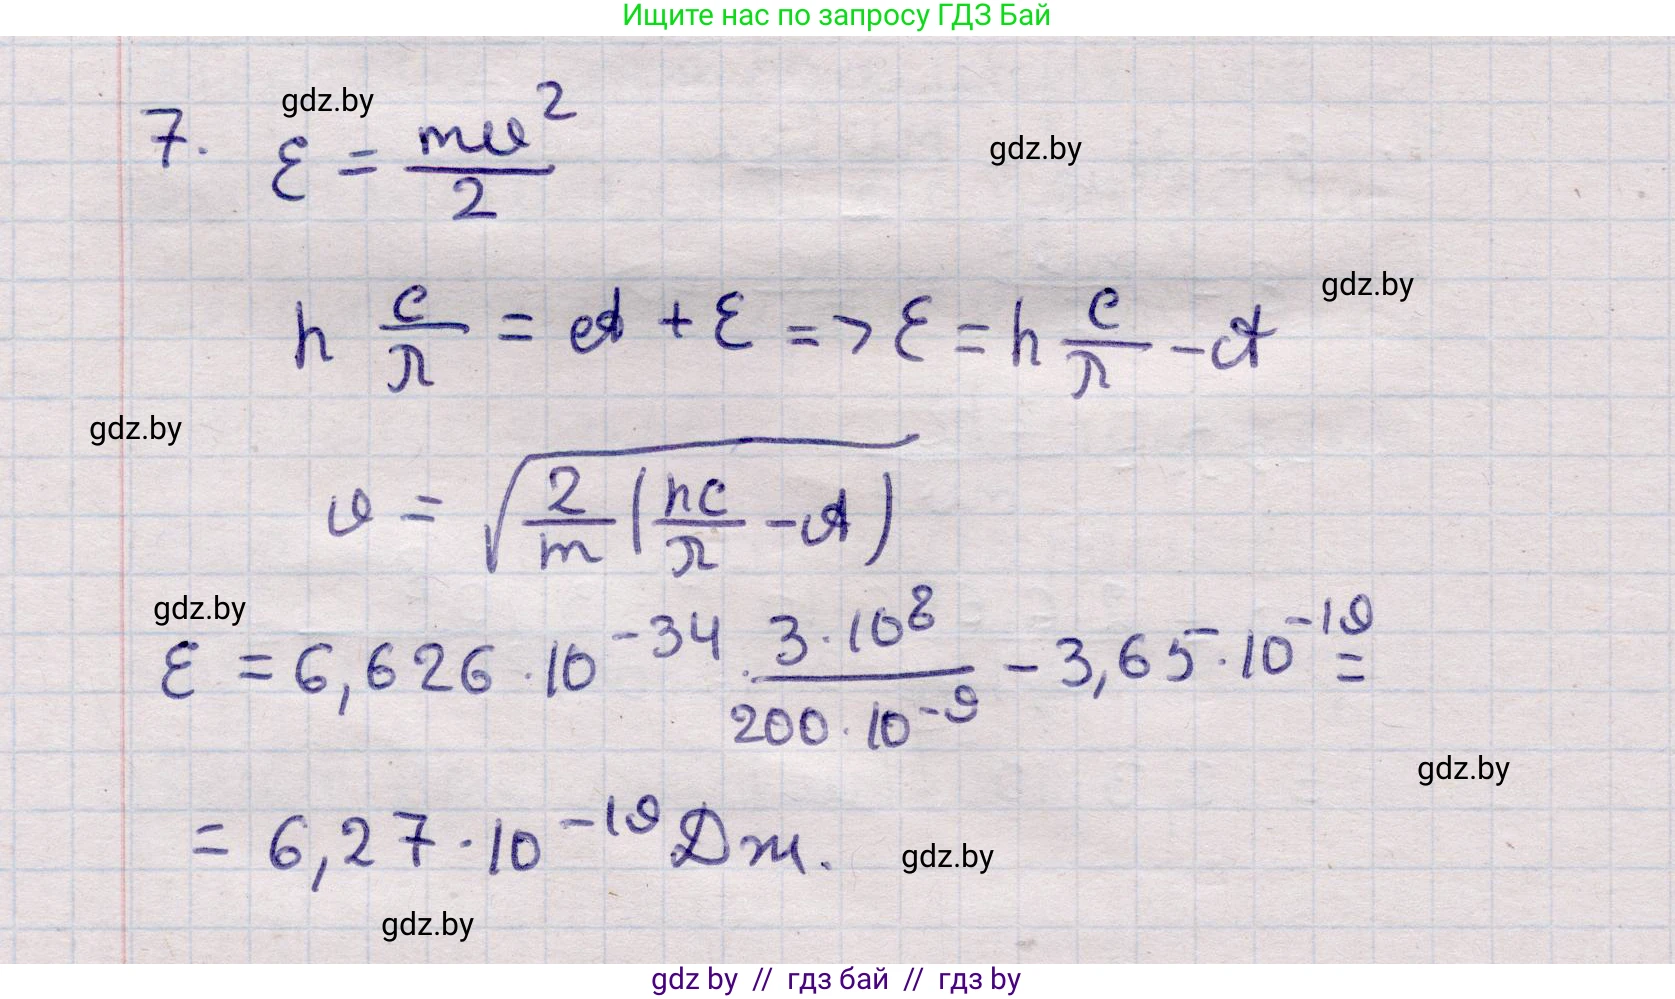 Ищите нас по запросу ГДЗ Бай
gdz.by
7. ε = mυ² / 2
gdz.by
h c/λ = A + ε => ε = h c/λ - A
gdz.by
gdz.by
υ = √(2/m (hc/λ - A))
gdz.by
ε = 6,626 · 10⁻³⁴ · 3 · 10⁸ / 200 · 10⁻⁹ - 3,65 · 10⁻¹⁹ =
gdz.by
= 6,27 · 10⁻¹⁹ Дж.
gdz.by
gdz.by
gdz by // гдз бай // гдз by